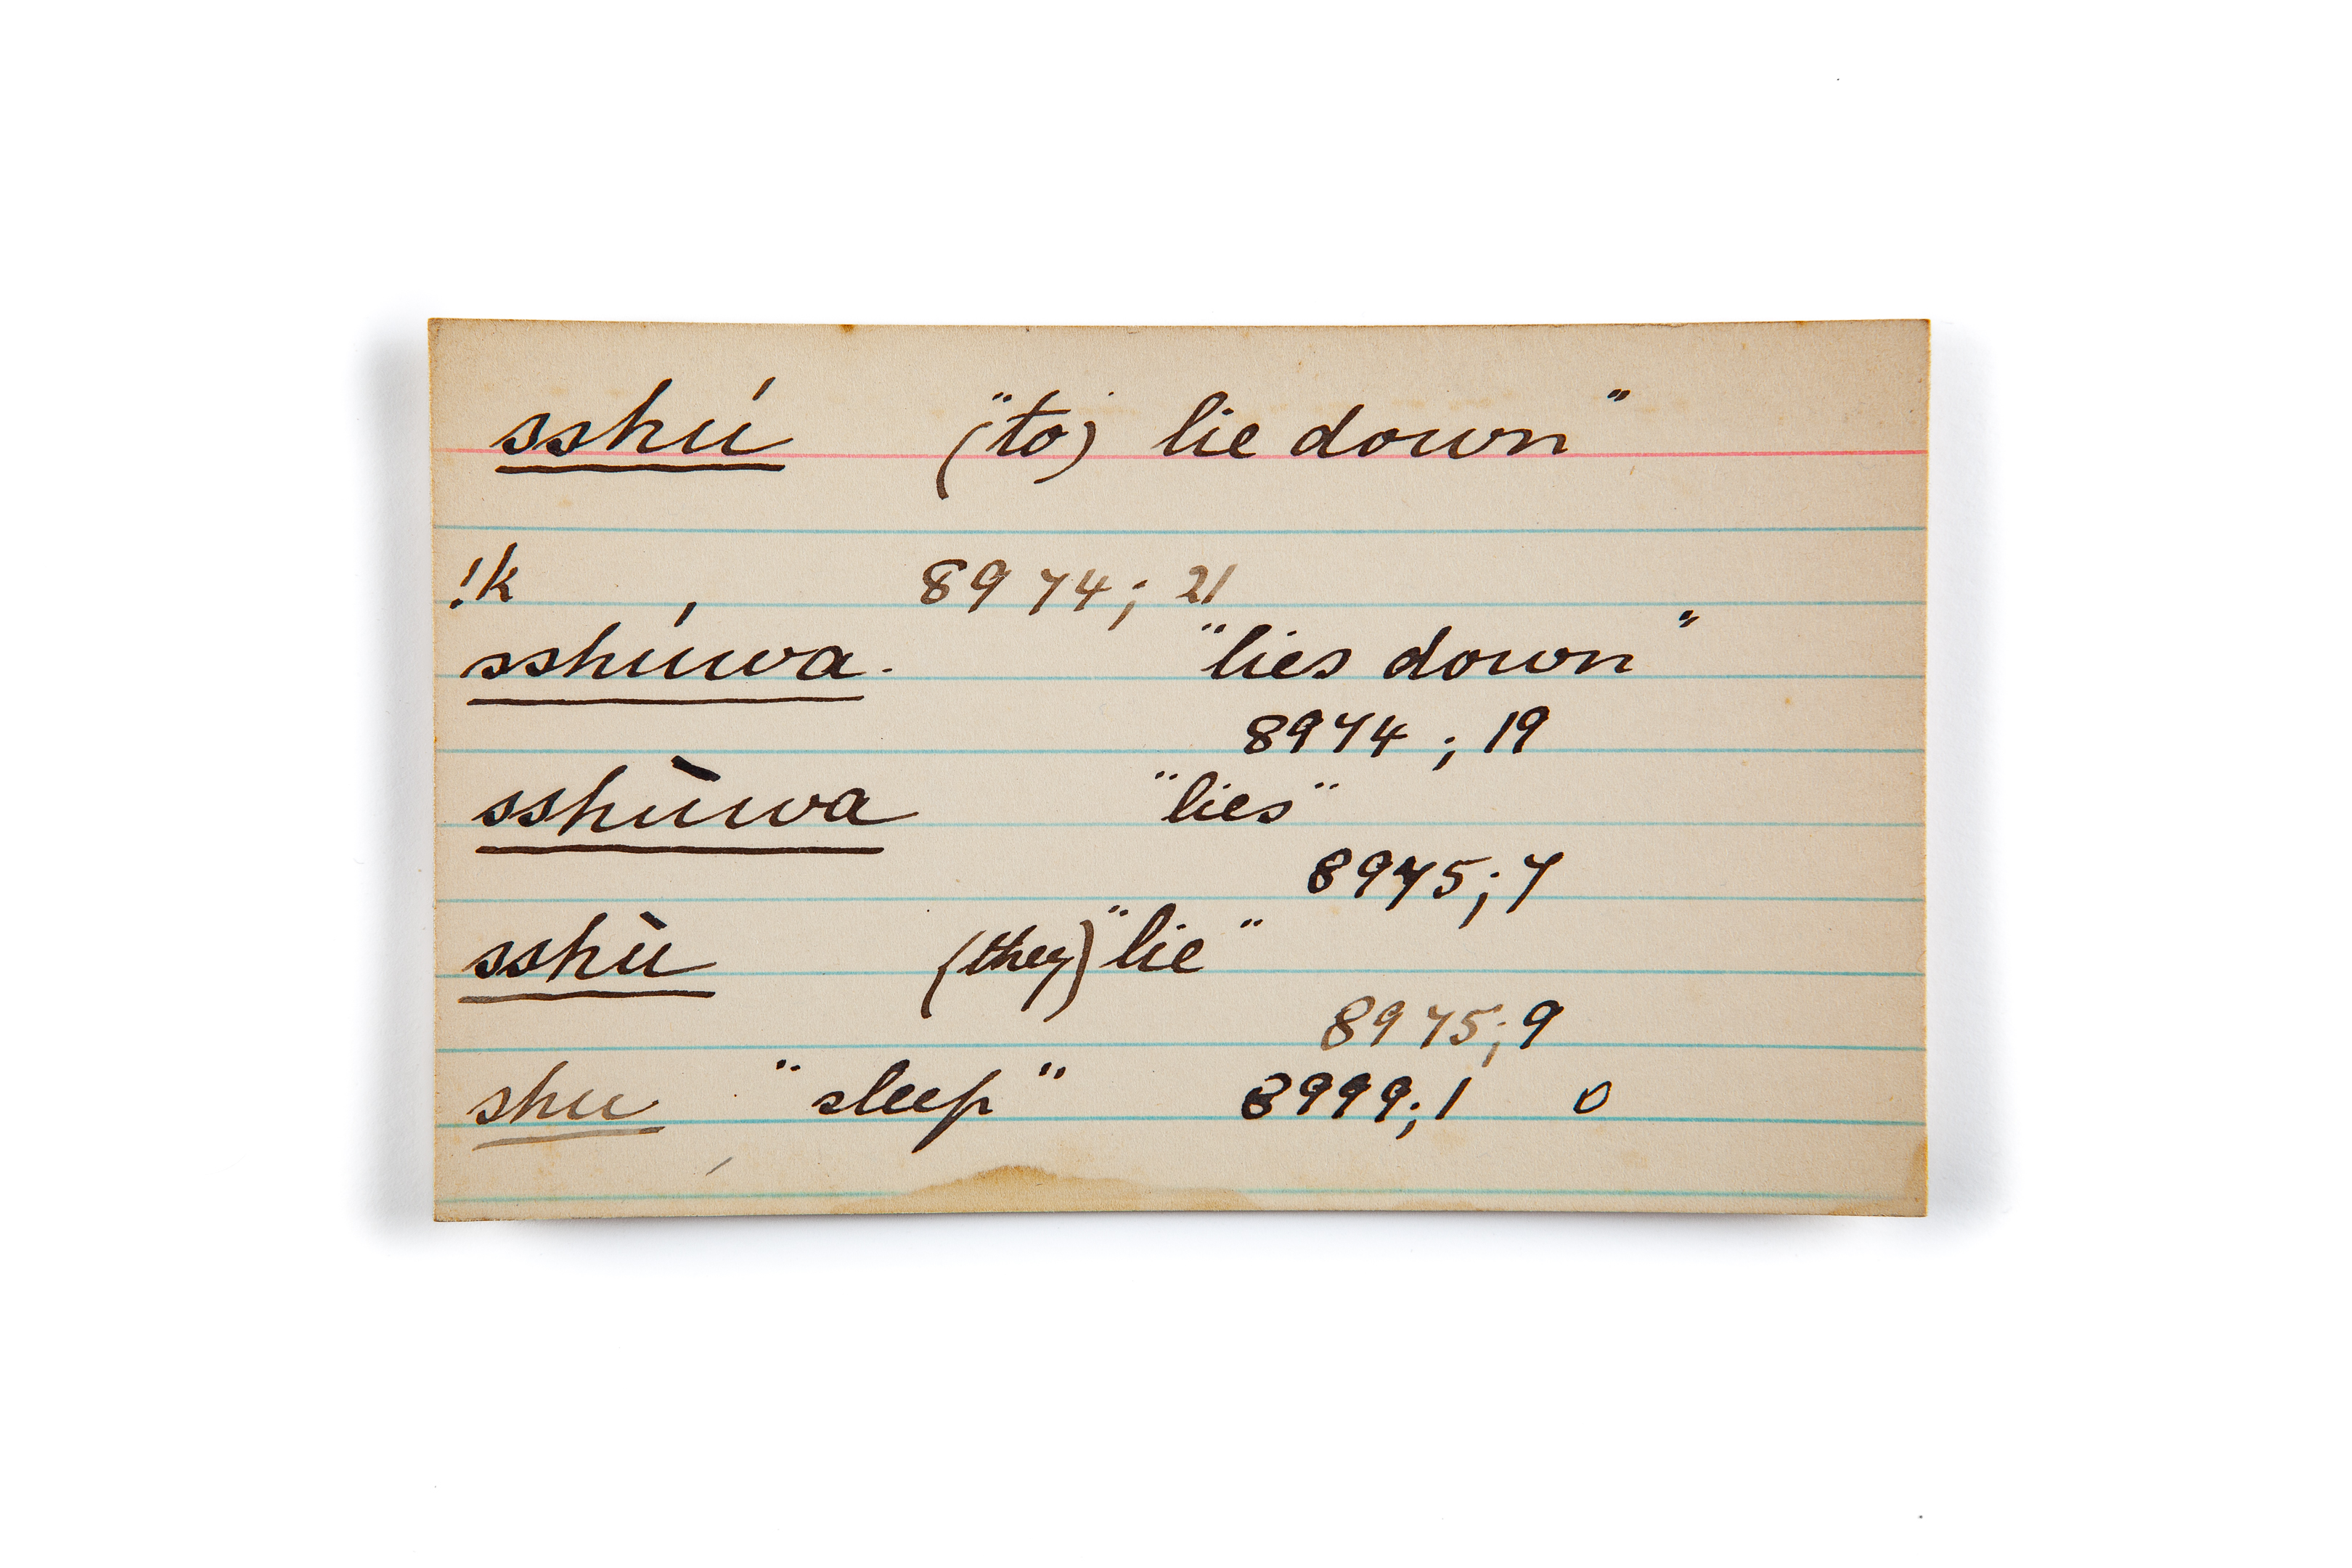 sshú ("to) lie down"
!k 8974; 21
sshúwa. "lies down"
8974; 19
sshùwa "lies"
8975; 7
sshù (they) "lie"
8975; 9
shu "sleep" 8999; 1 o